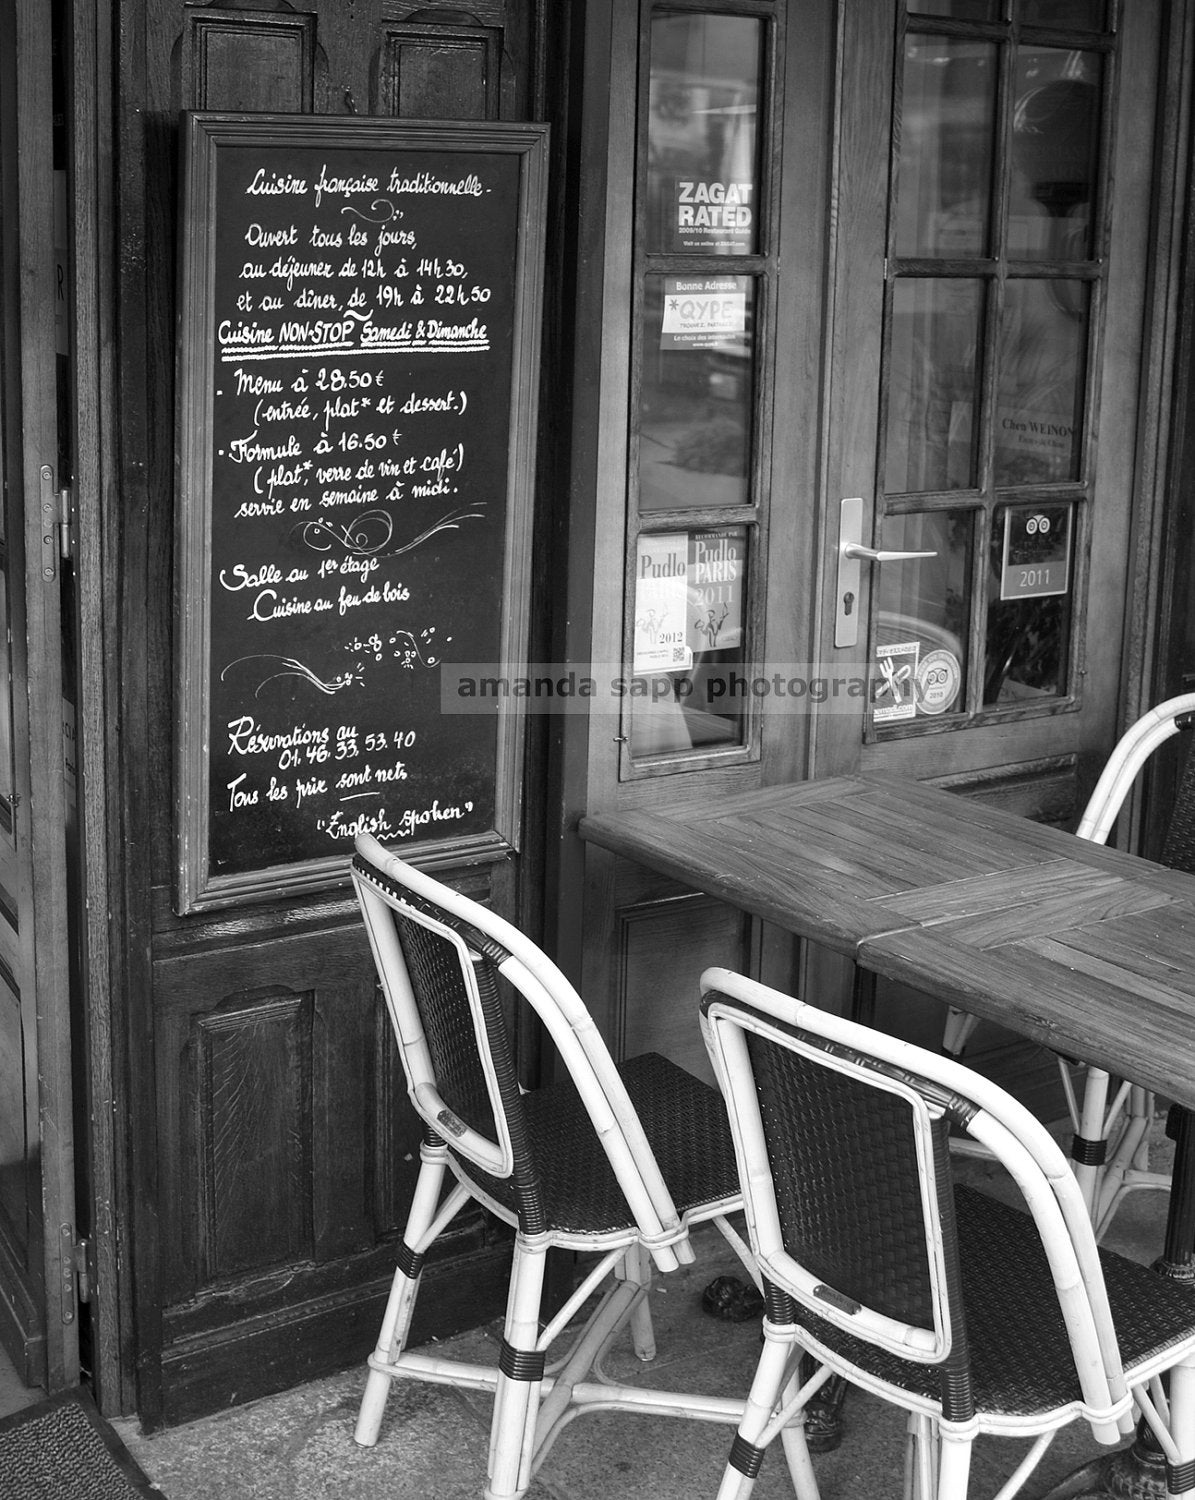 Cuisine française traditionnelle-
Ouvert tous les jours,
au déjeuner de 12h à 14h30,
et au dîner, de 19h à 22h50
Cuisine NON-STOP Samedi & Dimanche
. Menu à 28.50€
(entrée, plat* et dessert.)
. Formule à 16.50€
(plat*, verre de vin et café)
servie en semaine à midi.
Salle au 1er étage
Cuisine au feu de bois
Réservations au
01.46.33.53.40
Tous les prix sont nets
"English spoken"
ZAGAT
RATED
2009/10 Restaurant Guide
Visit us online at ZAGAT.com
Bonne Adresse
*QYPE
Le choix des internautes
Chen WEINON
Pudlo
2012
RECOMMANDÉ PAR
Pudlo
PARIS
2011
2011
2010
amanda sapp photography